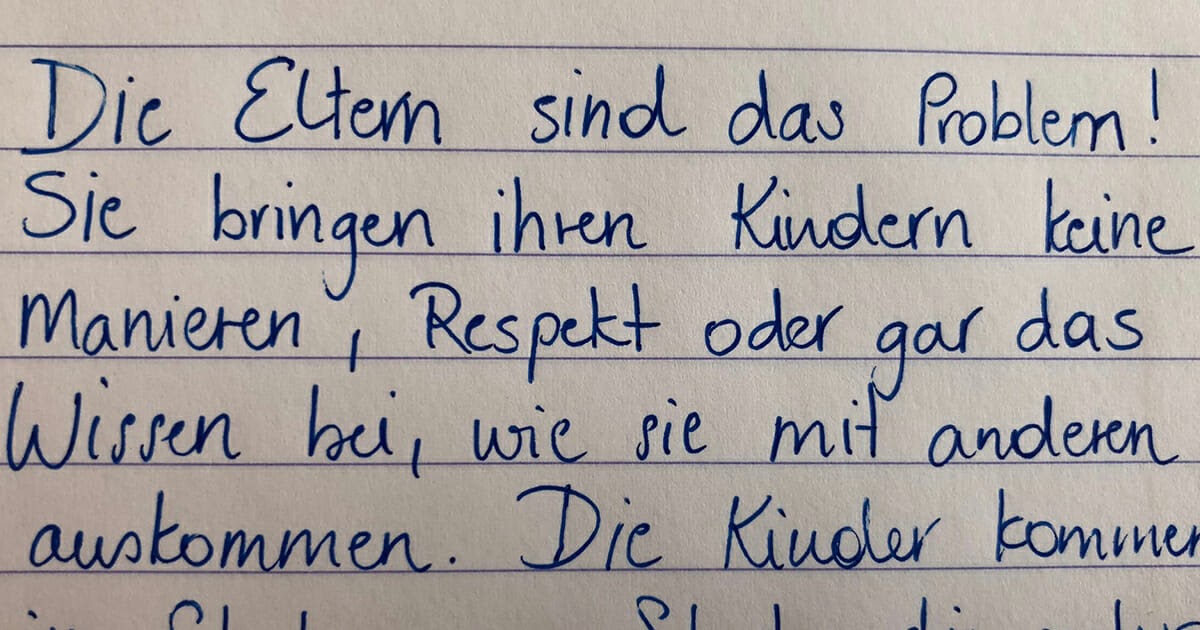 Die Eltern sind das Problem!
Sie bringen ihren Kindern keine
Manieren, Respekt oder gar das
Wissen bei, wie sie mit anderen
auskommen. Die Kinder kommen